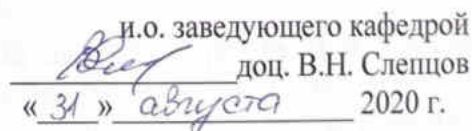 и.о. заведующего кафедрой
доц. В.Н. Слепцов
« 31 » августа 2020 г.